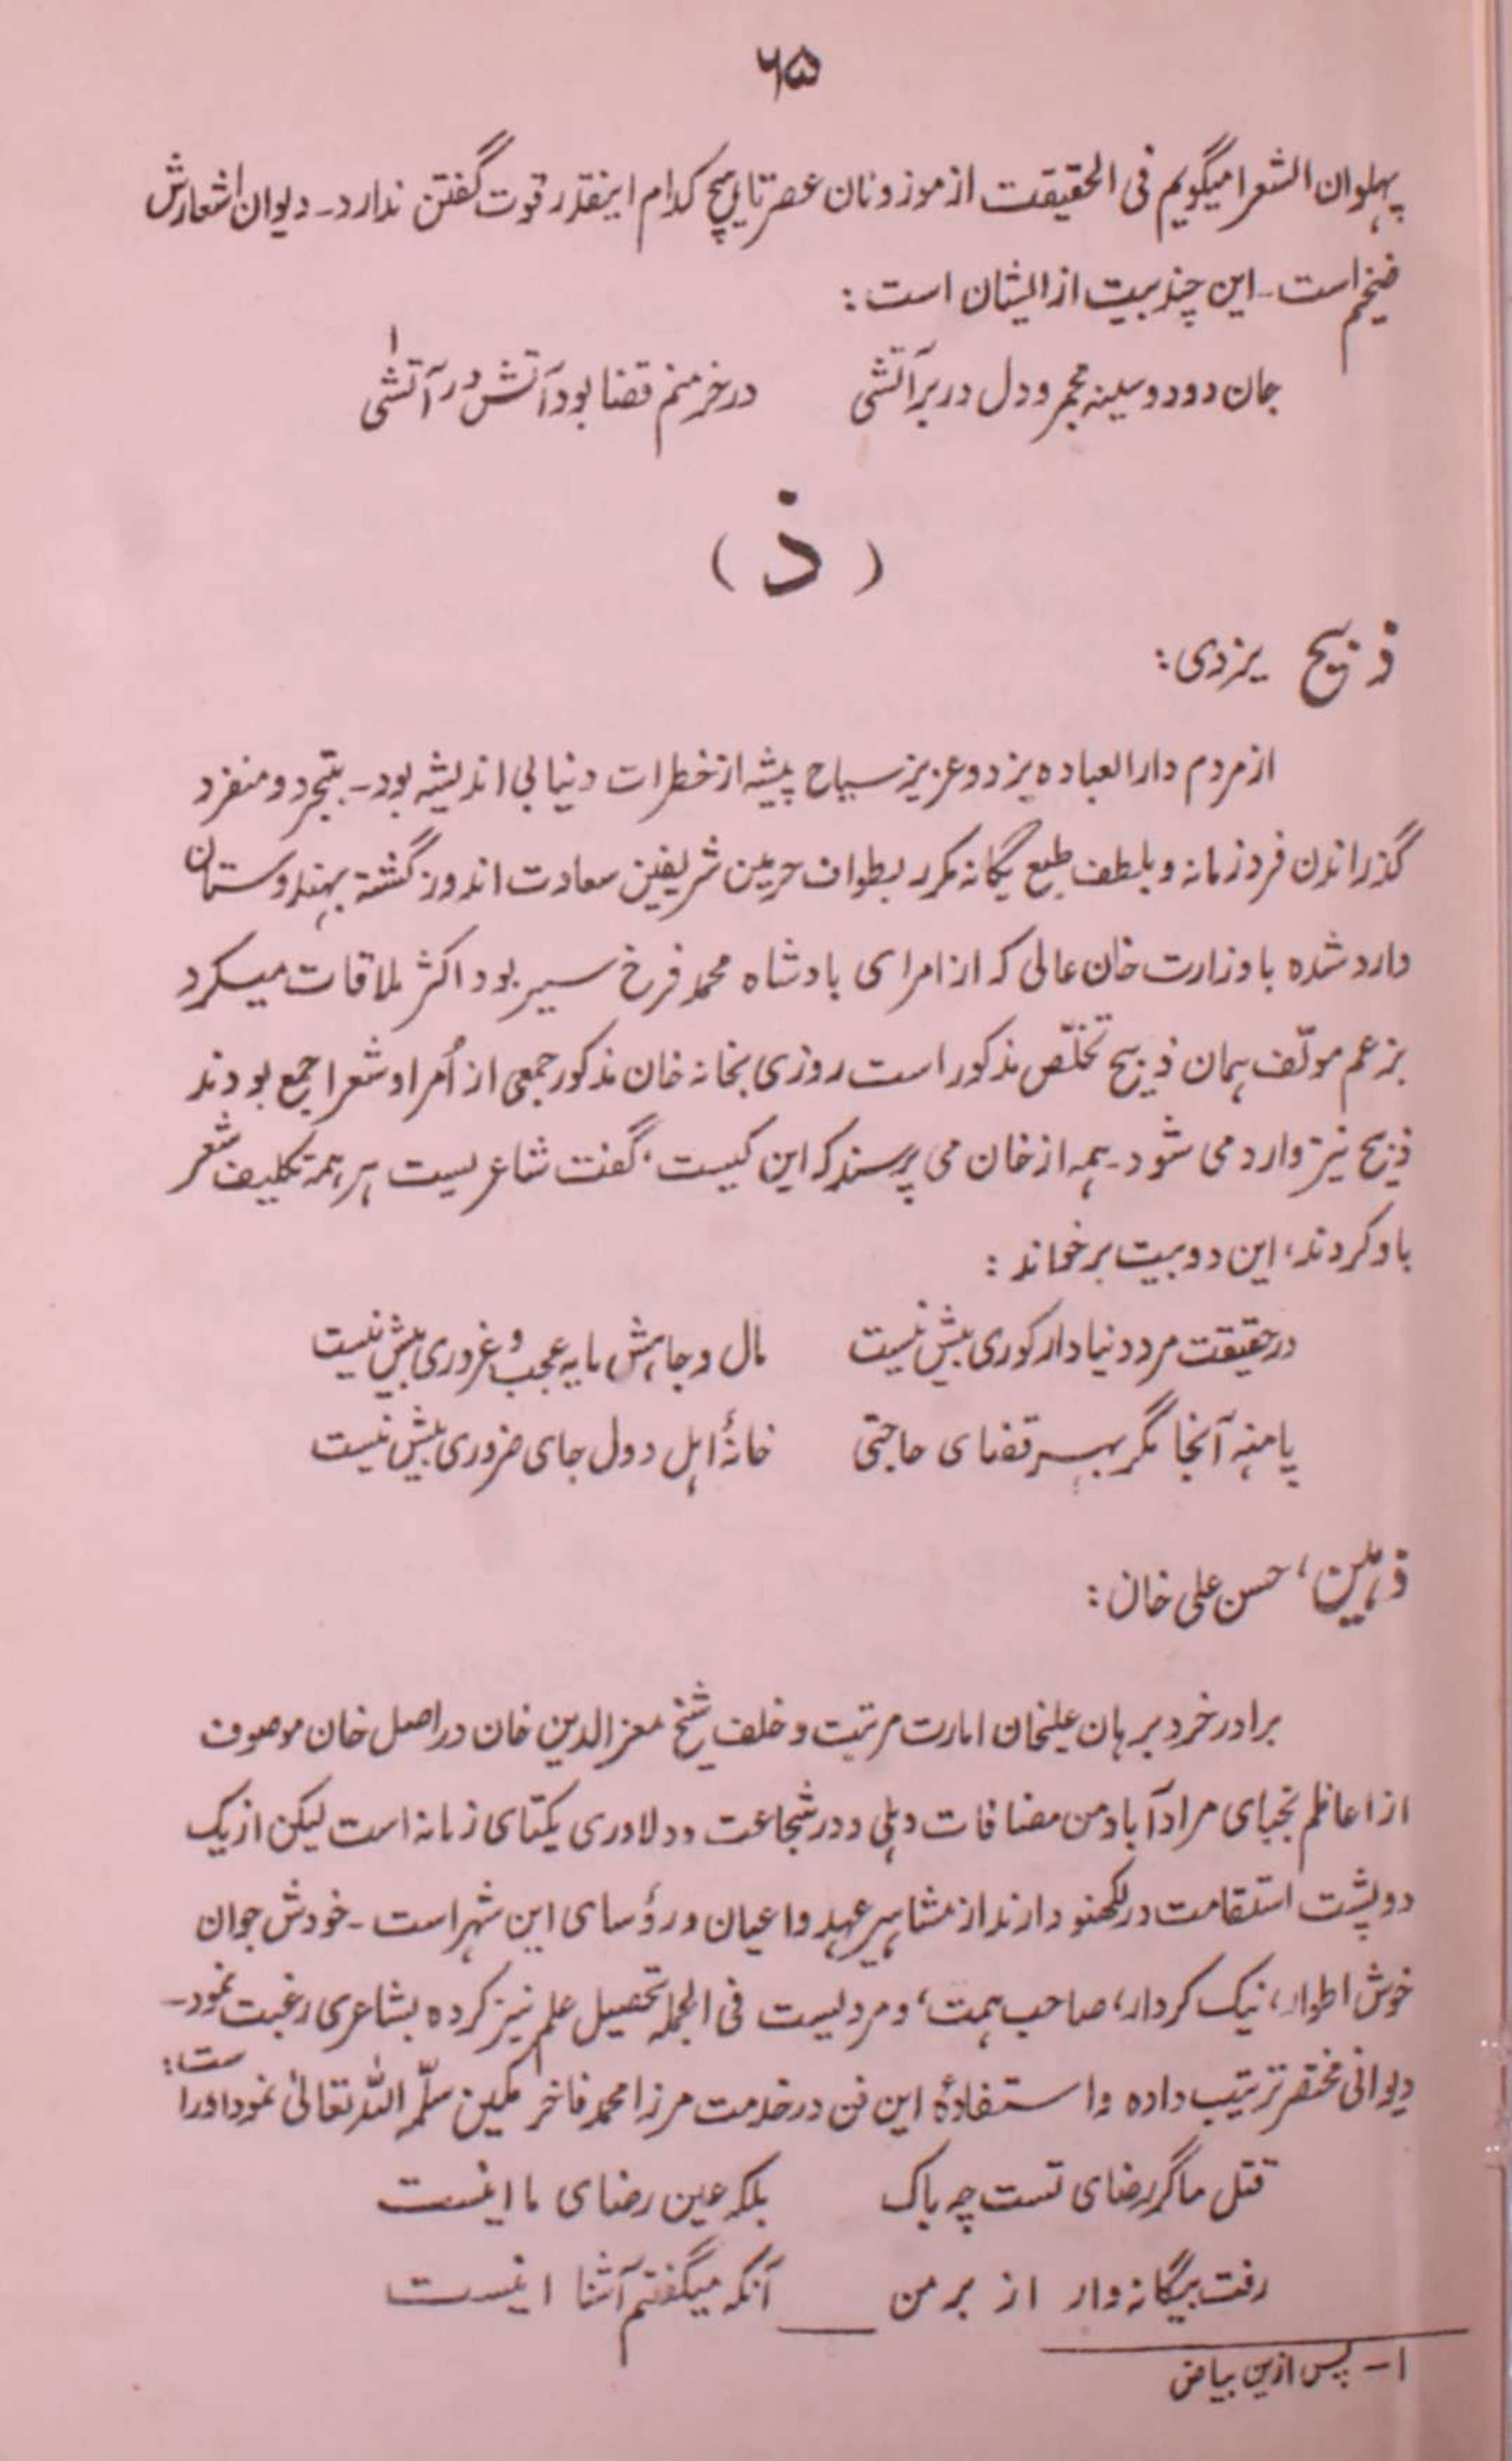 ۶۵
پہلوان الشعرا میگویم فی الحقیقت از موزونان عصر تا ہیچ کدام اینقدر قوت گفتن ندارد۔ دیوان اشعارش
ضخیم است۔ این چند بیت از ایشان است:
جان دود و سینہ مجمر و دل در بر آتشی درخرمنم قضا بود آتش در آتشی ۱
( ذ )
ذبیح یزدی:
از مردم دارالعبادہ یزد و عزیز سیاح پیشہ از خطرات دنیا بی اندیشہ بود۔ بتجرد و منفرد
گذراندن فرد زمانہ و بلطف طبع یگانہ مکرر بطواف حرمین شریفین سعادت اندوز گشتہ بہندوستان
وارد شدہ با وزارت خان عالی کہ از امرای بادشاہ محمد فرخ سیر بود اکثر ملاقات میکرد
بزعم مولّف ہمان ذبیح تخلّص مذکور است روزی بخانہ خان مذکور جمعی از اُمرا و شعرا جمع بودند
ذبیح نیز وارد می شود۔ ہمہ از خان می پرسند کہ این کیست، گفت شاعریست ہر ہمہ تکلیف شعر
باو کردند، این دو بیت برخواند:
در حقیقت مرد دنیادار کوری بیش نیست مال و جاہش مایہ عجب و غروری بیش نیست
پا منہ آنجا مگر بہر قضای حاجتی خانۂ اہل دول جای ضروری بیش نیست
ذہین، حسن علی خان:
برادر خردِ برہان علیخان امارت مرتبت و خلف شیخ معزالدین خان در اصل خان موصوف
از اعاظم نجبای مرادآباد من مضافات دہلی و در شجاعت و دلاوری یکتای زمانہ است لیکن از یک
دو پشت استقامت در لکھنو دارند از مشاہیر عہد و اعیان و رؤسای این شہر است۔ خودش جوان
خوش اطوار، نیک کردار، صاحب ہمت، و مردیست فی الجملہ تحصیل علم نیز کردہ بشاعری رغبت نمود۔
دیوانی مختصر ترتیب دادہ و استفادۂ این فن در خدمت مرزا محمد فاخر مکین سلّمہ اللہ تعالیٰ نمود او راست:
قتل ما گر رضای تست چہ باک بلکہ عین رضای ما اینست
رفت بیگانہ وار از بر من آنکہ میگفتم آشنا اینست
۱- پس ازین بیاض